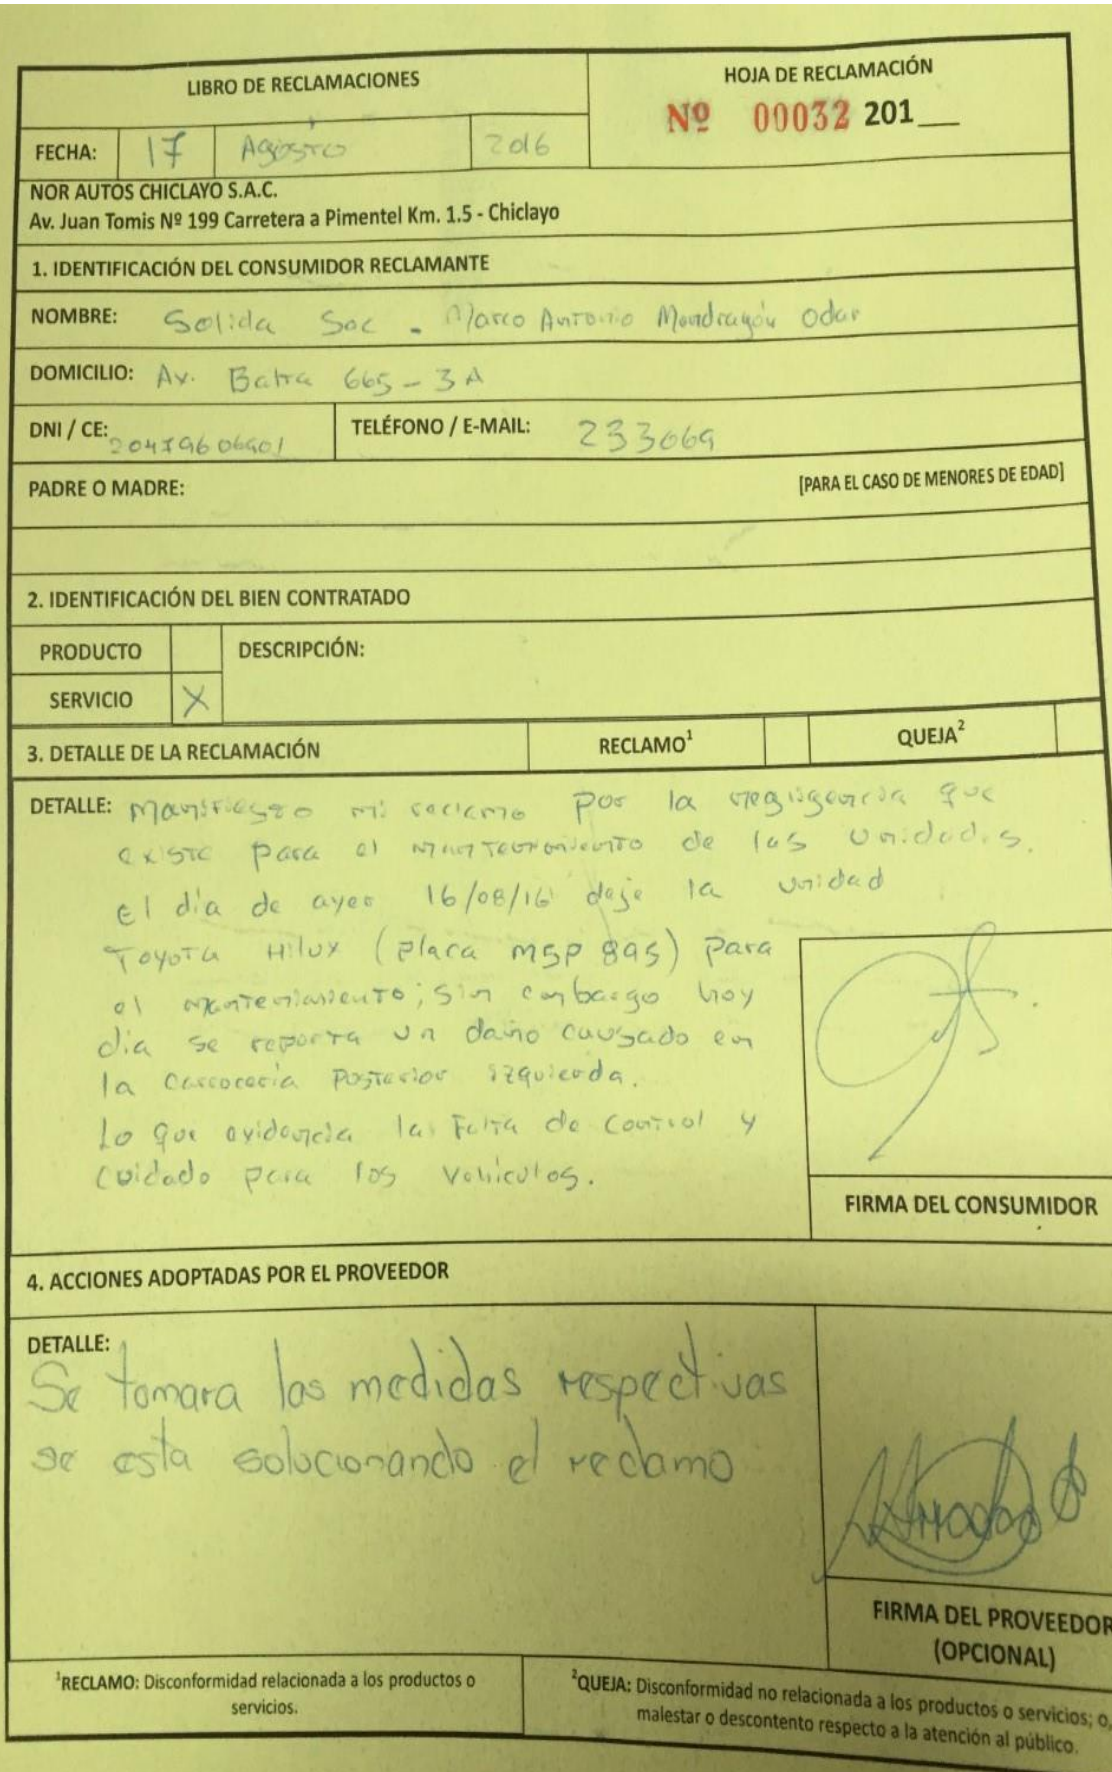 LIBRO DE RECLAMACIONES
HOJA DE RECLAMACIÓN
Nº 00032 201__
FECHA: 17 Agosto 2016
NOR AUTOS CHICLAYO S.A.C.
Av. Juan Tomis Nº 199 Carretera a Pimentel Km. 1.5 - Chiclayo
1. IDENTIFICACIÓN DEL CONSUMIDOR RECLAMANTE
NOMBRE: Solida Sac - Marco Antonio Mondragón Odar
DOMICILIO: Av. Balta 665 - 3A
DNI / CE: 20479606901 TELÉFONO / E-MAIL: 233069
PADRE O MADRE: [PARA EL CASO DE MENORES DE EDAD]
2. IDENTIFICACIÓN DEL BIEN CONTRATADO
PRODUCTO DESCRIPCIÓN:
SERVICIO X
3. DETALLE DE LA RECLAMACIÓN RECLAMO¹ QUEJA²
DETALLE: Manifiesto mi reclamo por la negligencia que
existe para el mantenimiento de las unidades.
El día de ayer 16/08/16 deje la unidad
Toyota Hilux (placa M5P 895) para
el mantenimiento; sin embargo hoy
día se reporta un daño causado en
la carrocería posterior izquierda.
Lo que evidencia la falta de control y
cuidado para los vehiculos.
FIRMA DEL CONSUMIDOR
4. ACCIONES ADOPTADAS POR EL PROVEEDOR
DETALLE:
Se tomara las medidas respectivas
se esta solucionando el reclamo
FIRMA DEL PROVEEDOR
(OPCIONAL)
¹RECLAMO: Disconformidad relacionada a los productos o
servicios.
²QUEJA: Disconformidad no relacionada a los productos o servicios; o,
malestar o descontento respecto a la atención al público.